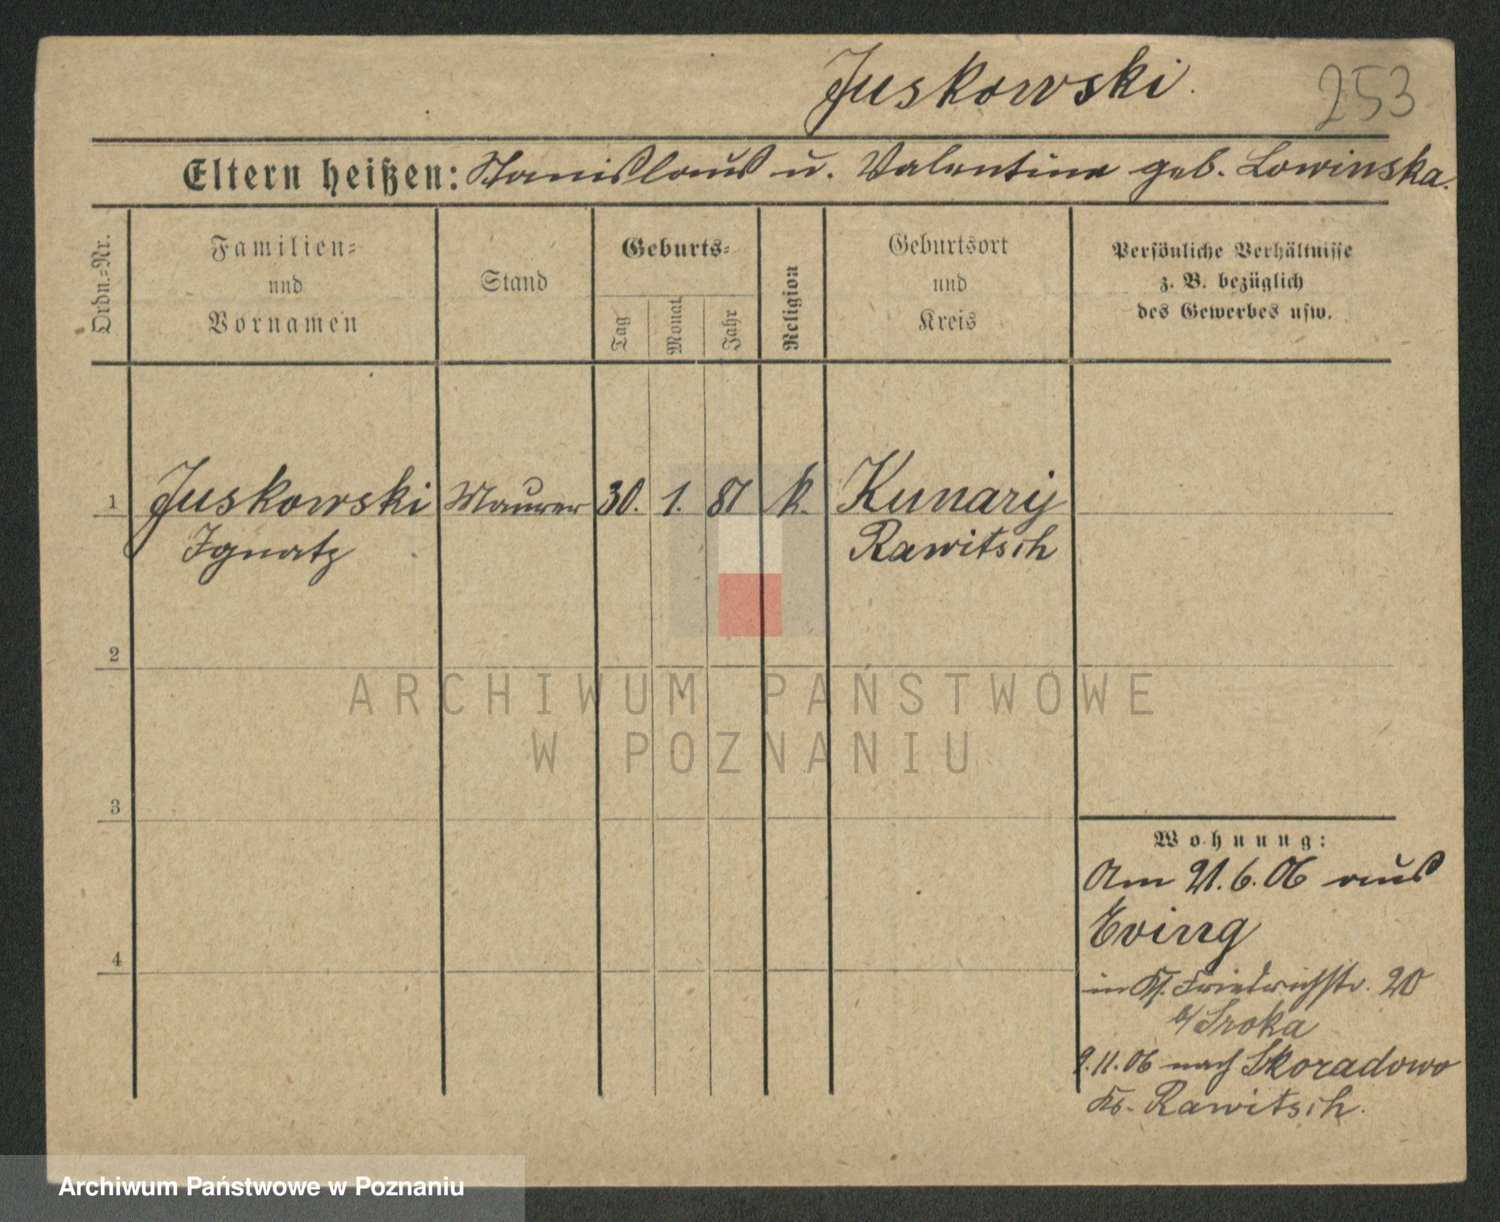 Juskowski.
253
Eltern heißen: Stanislaus u. Valentine geb. Lowinska.
Ordn.-Nr.
Familien-
und
Vornamen
Stand
Geburts-
Tag
Monat
Jahr
Religion
Geburtsort
und
Kreis
Persönliche Verhältnisse
z. B. bezüglich
des Gewerbes usw.
1 Juskowski Maurer 30. 1. 87 k. Kunary
Ignatz Rawitsch
2
ARCHIWUM PAŃSTWOWE
W POZNANIU
3
Wohnung:
Am 21.6.06 aus
Eving
4
in Friedrichstr. 20
b/ Sroka
9.11.06 nach Skoradowo
Ks. Rawitsch.
Archiwum Państwowe w Poznaniu